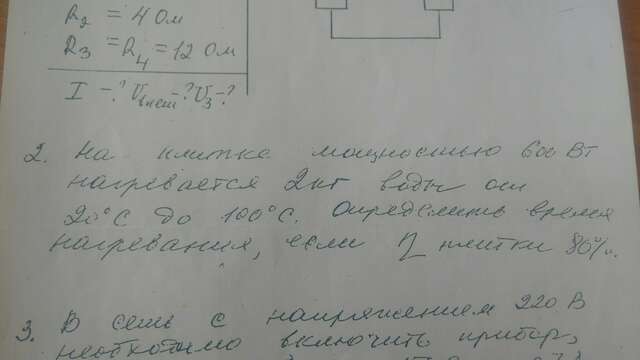 R₂ = 4 Ом
R₃ = R₄ = 12 Ом
I - ? Uвнеш - ? U₃ - ?
2. На плитке мощностью 600 Вт
нагревается 2 кг воды от
20°С до 100°С. Определить время
нагревания, если η плитки 80%.
3. В сеть с напряжением 220 В
необходимо включить прибор,